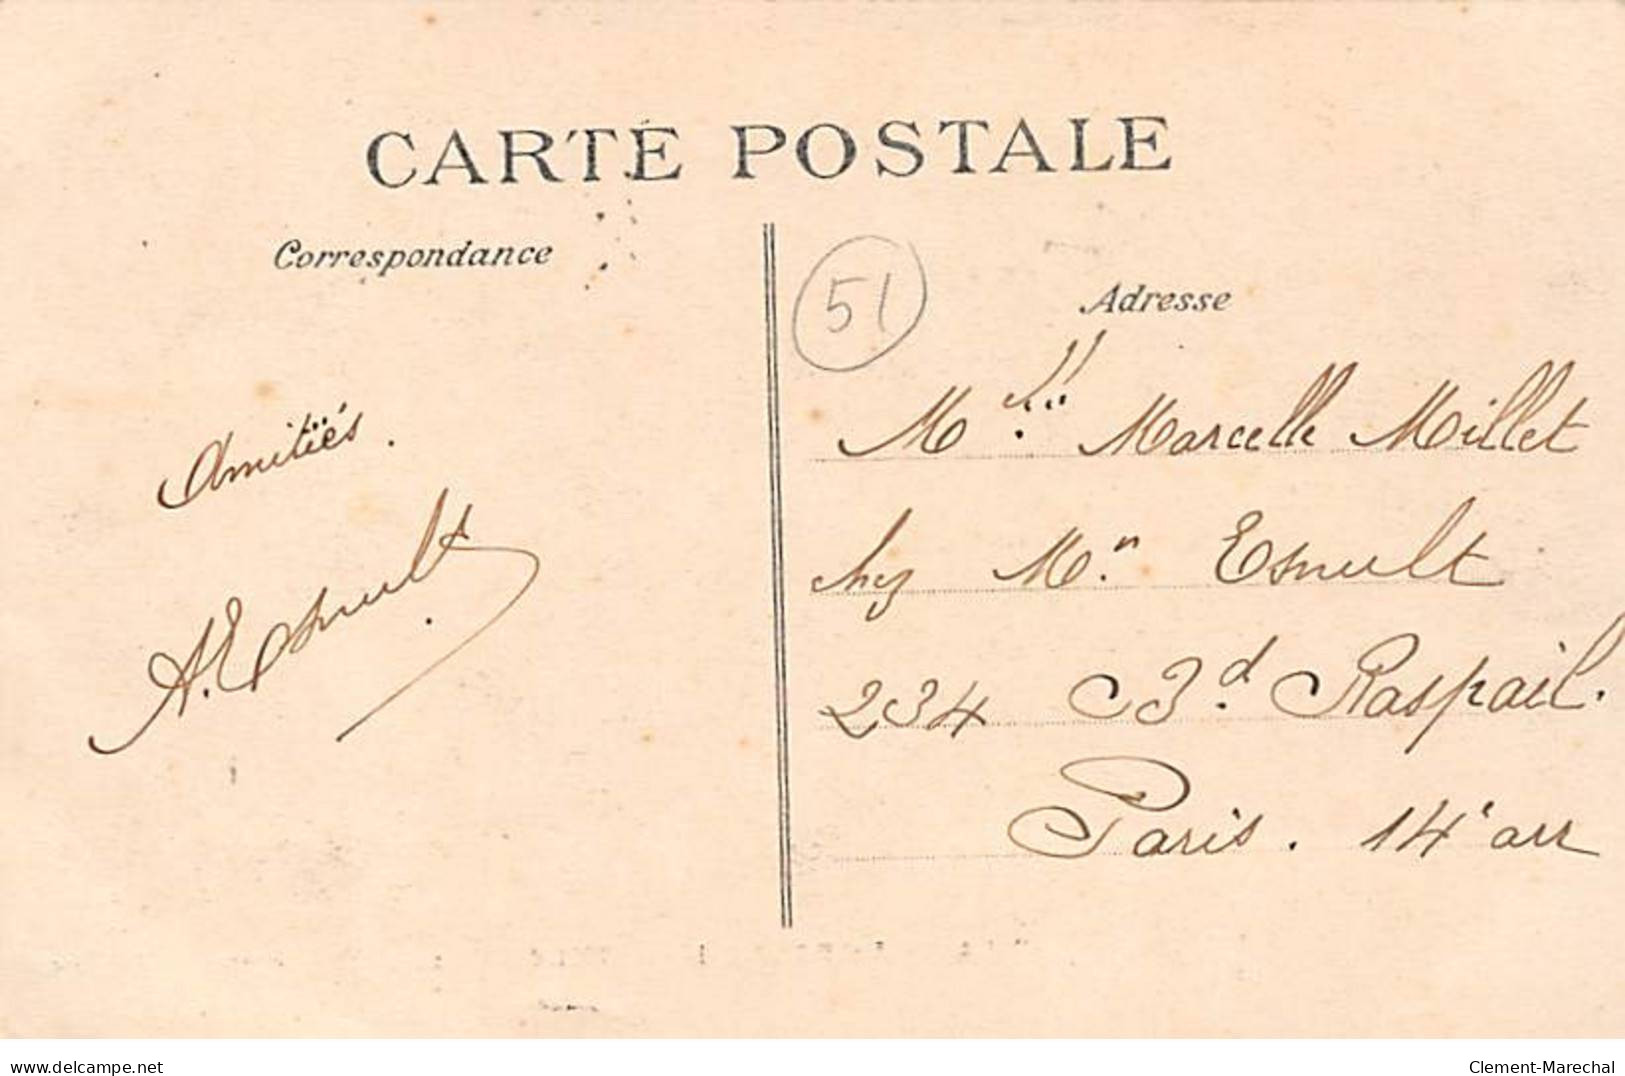 CARTE POSTALE
Correspondance
51
Adresse
Amitiés.
A. Esnult
Mlle Marcelle Millet
chez Mn. Esnult
234 Bd. Raspail.
Paris. 14e arr
delcampe.net
Clement-Marechal